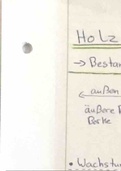 Holz
→ Bestan
← außen
äußere
Borke
• Wachstu